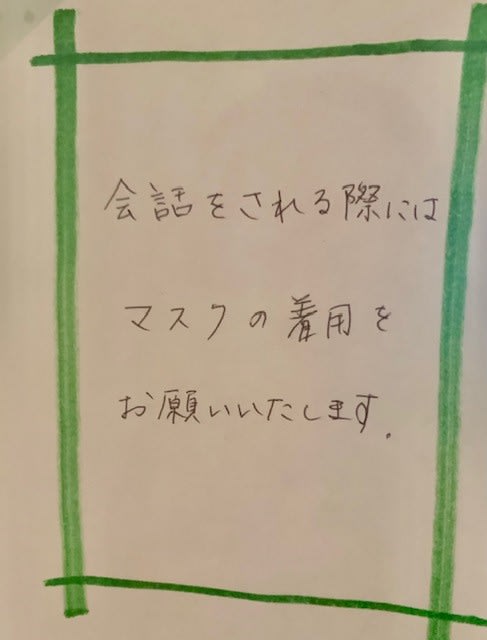 会話をされる際には
マスクの着用を
お願いいたします.